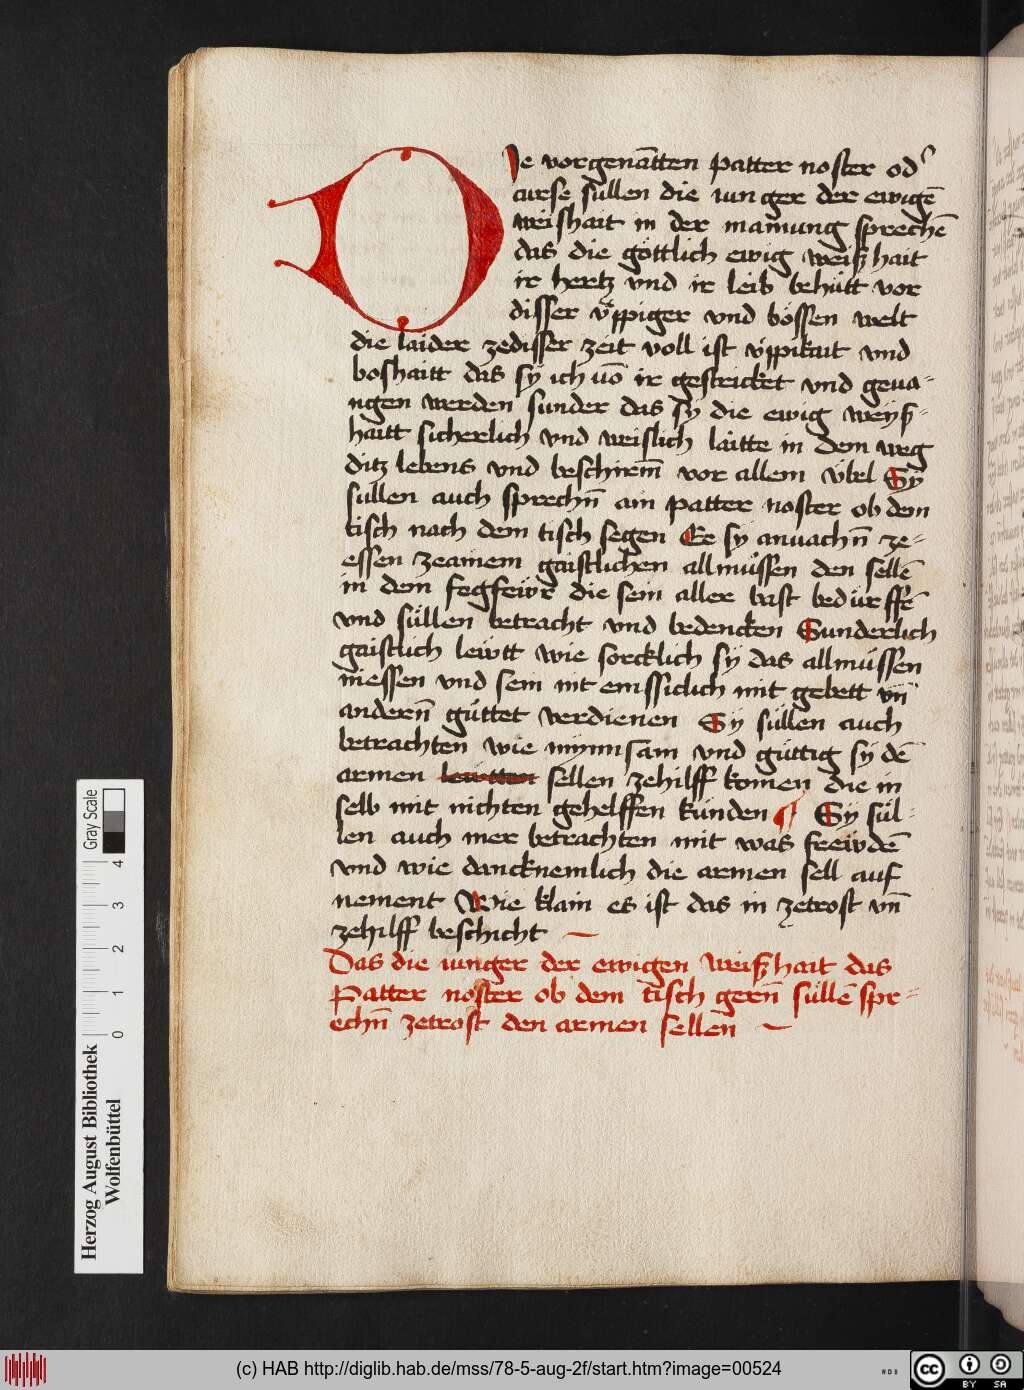 DIe vorgenātten patter noster od᷎
curse sullen die iunger der ewigē
weishait in der mainung sprechē
das die göttlich ewig weiszhait
ir hertz vnd ir leib behůtt vor
disser v̈ppiger vnd bössen welt
die laider zedisser zeit voll ist v̈ppikait vnd
boshaitt das sÿ ich vō ir gestricket vnd geua-
ngen werden sunder das sÿ die ewig weÿsz-
haitt sicherlich vnd weislich laitte in dem weg
ditz lebens vnd beschirm̄ vor allem v̈bel Sÿ
sullen auch sprechn̄ ain patter noster ob dem
tisch nach dem tisch segen Ee sÿ anuachn̄ ze-
essen zeainem gaistlichen allmůssen den sellē
in dem fegfeẅr die sein aller bast bedürffē
vnd süllen betracht vnd bedencken Sunderlich
gaistlich leẅtt wie sorcklich sÿ das allmüssen
niessen vnd sein nit emssiclich mit gebett vn̄
andern̄ gůttet verdienen Sÿ süllen auch
betrachten wie mÿnnsam vnd güttig sÿ dē
armen leẅtten sellen zehilff komen die in
selb mit nichten gehelffen künden ¶ Sÿ sül-
len auch mer betrachten mit was freẅdē
vnd wie dancknemlich die armen sell auf
nement Wie klain es ist das in zetrost vn̄
zehilff beschicht
Das die iunger der ewigen weiszhait das
Patter noster ob dem tisch gern̄ süllē spr-
echn̄ zetrost den armen sellen
Gray Scale
0 1 2 3 4
Herzog August Bibliothek
Wolfenbüttel
(c) HAB http://diglib.hab.de/mss/78-5-aug-2f/start.htm?image=00524
WDB
cc BY SA